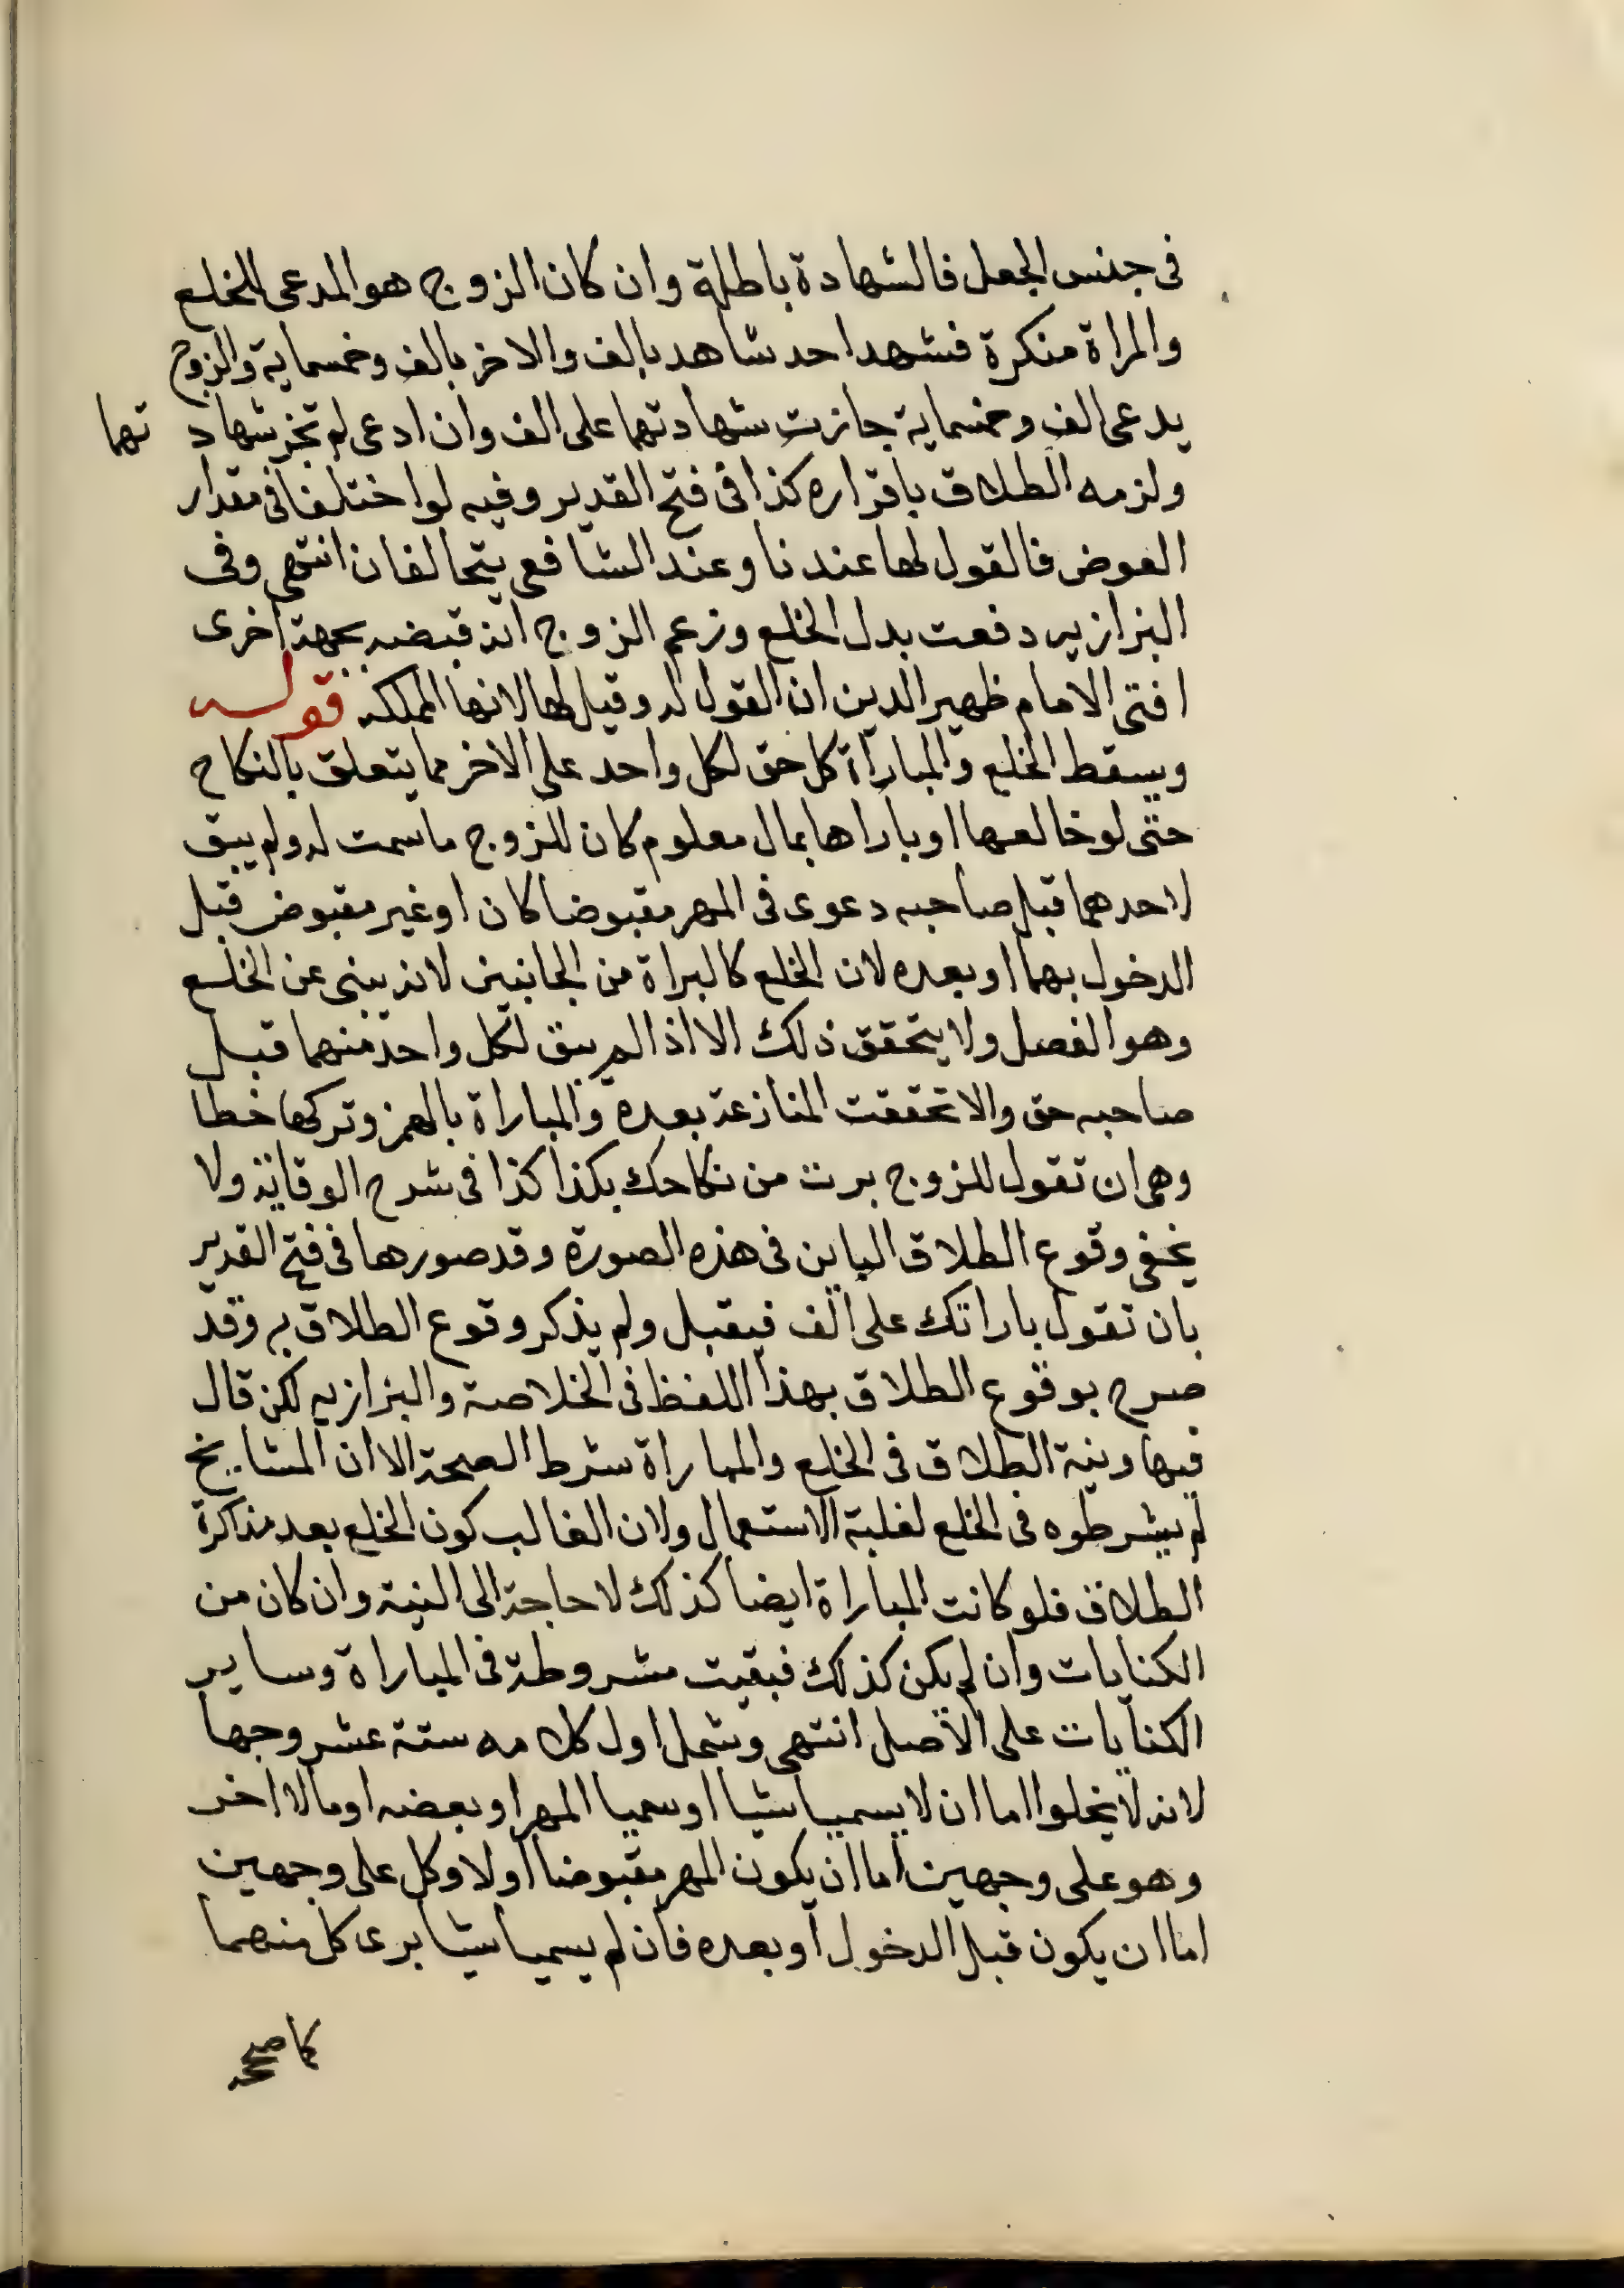 فى جنس الجعل فالشهادة باطلة وان كان الزوج هو المدعى للخلع
والمراة منكرة فشهد احد شاهد بالف والاخر بالف وخمسماية والزوج
يدعى الف وخمسماية جازت شهادتهما على الف وان ادعى لم تجز شهاد تهما
ولزمه الطلاق باقراره كذا فى فتح القدير وفيه لو اختلفا فى مقدار
العوض فالقول لها عندنا وعند الشافعى يتحالفان انتهى وفى
البزازيه دفعت بدل الخلع وزعم الزوج انه قبضه بجهة اخرى
افتى الامام ظهير الدين ان القول له وقيل لها لانها المملكه قوله
ويسقط الخلع والمباراة كل حق لكل واحد على الاخر مما يتعلق بالنكاح
حتى لو خالعها او باراها بمال معلوم كان للزوج ما سمت له ولم يبق
لاحدهما قبل صاحبه دعوى فى المهر مقبوضا كان او غير مقبوض قبل
الدخول بهما او بعده لان الخلع كالبراة من الجانبين لانه ينبى عن الخلع
وهو الفصل ولا يتحقق ذلك الا اذا لم يبق لكل واحد منهما قبل
صاحبه حق والا تحققت المنازعة بعده والمباراة بالهمز وتركها خطا
وهى ان تقول للزوج برت من نكاحك بكذا كذا فى شرح الوقاية ولا
يخفى وقوع الطلاق الباين فى هذه الصورة وقد صورها فى فتح القدير
بان تقول باراتك على الف فيقبل ولم يذكر وقوع الطلاق به وقد
صرح بوقوع الطلاق بهذا اللفظ فى الخلاصة والبزازيه لكن قال
فيها ونية الطلاق فى الخلع والمباراة شرط الصحة الا ان المشايخ
لم يشرطوه فى الخلع لغلبة الاستعمال ولان الغالب كون الخلع بعد مذاكرة
الطلاق فلو كانت المباراة ايضا كذلك لا حاجة الى النية وان كان من
الكنايات وان لم يكن كذلك فبقيت مشروطة فى المباراة وساير
الكنايات على الاصل انتهى وشمل اول كلامه ستة عشر وجها
لانه لا يخلوا اما ان لا يسميا شيا او سميا المهر او بعضه او مالا اخر
وهو على وجهين اما ان يكون المهر مقبوضا اولا وكل على وجهين
اما ان يكون قبل الدخول او بعده فان لم يسميا شيا برى كل منهما